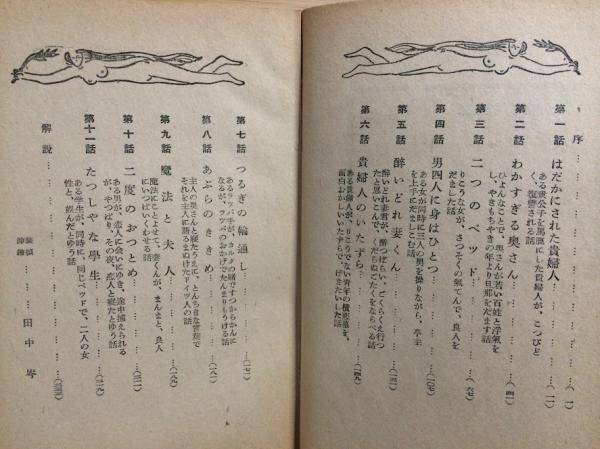 序……………………(一)
第一話 はだかにされた貴婦人…………(一)
ある貴公子を馬鹿にした貴婦人が、こつぴど
く、復讐される話
第二話 わかすぎる奥さん…………(四一)
ひよんなことで、奥さんが若い百姓と浮気を
し、やきもちやきの年より旦那をだます話
第三話 二つのベッド…………(六七)
りこうな女が、さつそくの気てんで、良人を
だました話
第四話 男四人に身はひとつ…………(一〇七)
ある女が同時に三人の男を操りながら、亭主
を上手にだましこむ話
第五話 酔いどれ妻くん…………(一三一)
酔いどれ妻君が、酔つぱらい、ごくらくえ行つ
たと思いこんで、くだらぬごたくをならべる話
第六話 貴婦人のいたずら…………(一四九)
ある貴婦人が、りこうでない青年の横恋慕を、
面白おかしいいたずらで、げきたいした話
第七話 つるぎの輪通し…………(一七一)
あるラッパ手が、カルタの賭ですつからかんに
なるが、ラツパのおかげでたんまりもうける話
第八話 あぶらのききめ…………(一八一)
主人の奥さんと寝たうえに、とんちきな言葉で
それを主人に語るまぬけなドイツ人の話
第九話 魔法と夫人…………(一八九)
魔法にことよせて、妻くんが、まんまと、良人
にいつぱいくわせる話
第十話 二度のおつとめ…………(二一一)
ある男が、恋人に会いにゆき、途中捕えられる
が、やつぱり、その夜、恋人と寝たとゆう話
第十一話 たつしやな學生…………(二一九)
ある学生が、同時に、同じベッドで、二人の女
性と、娯んだとゆう話
解説……………………(二三三)
装幀
挿繪……田中岑